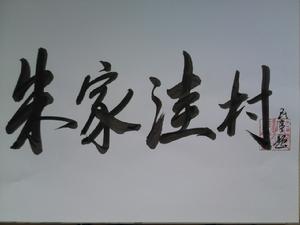 朱家洼村